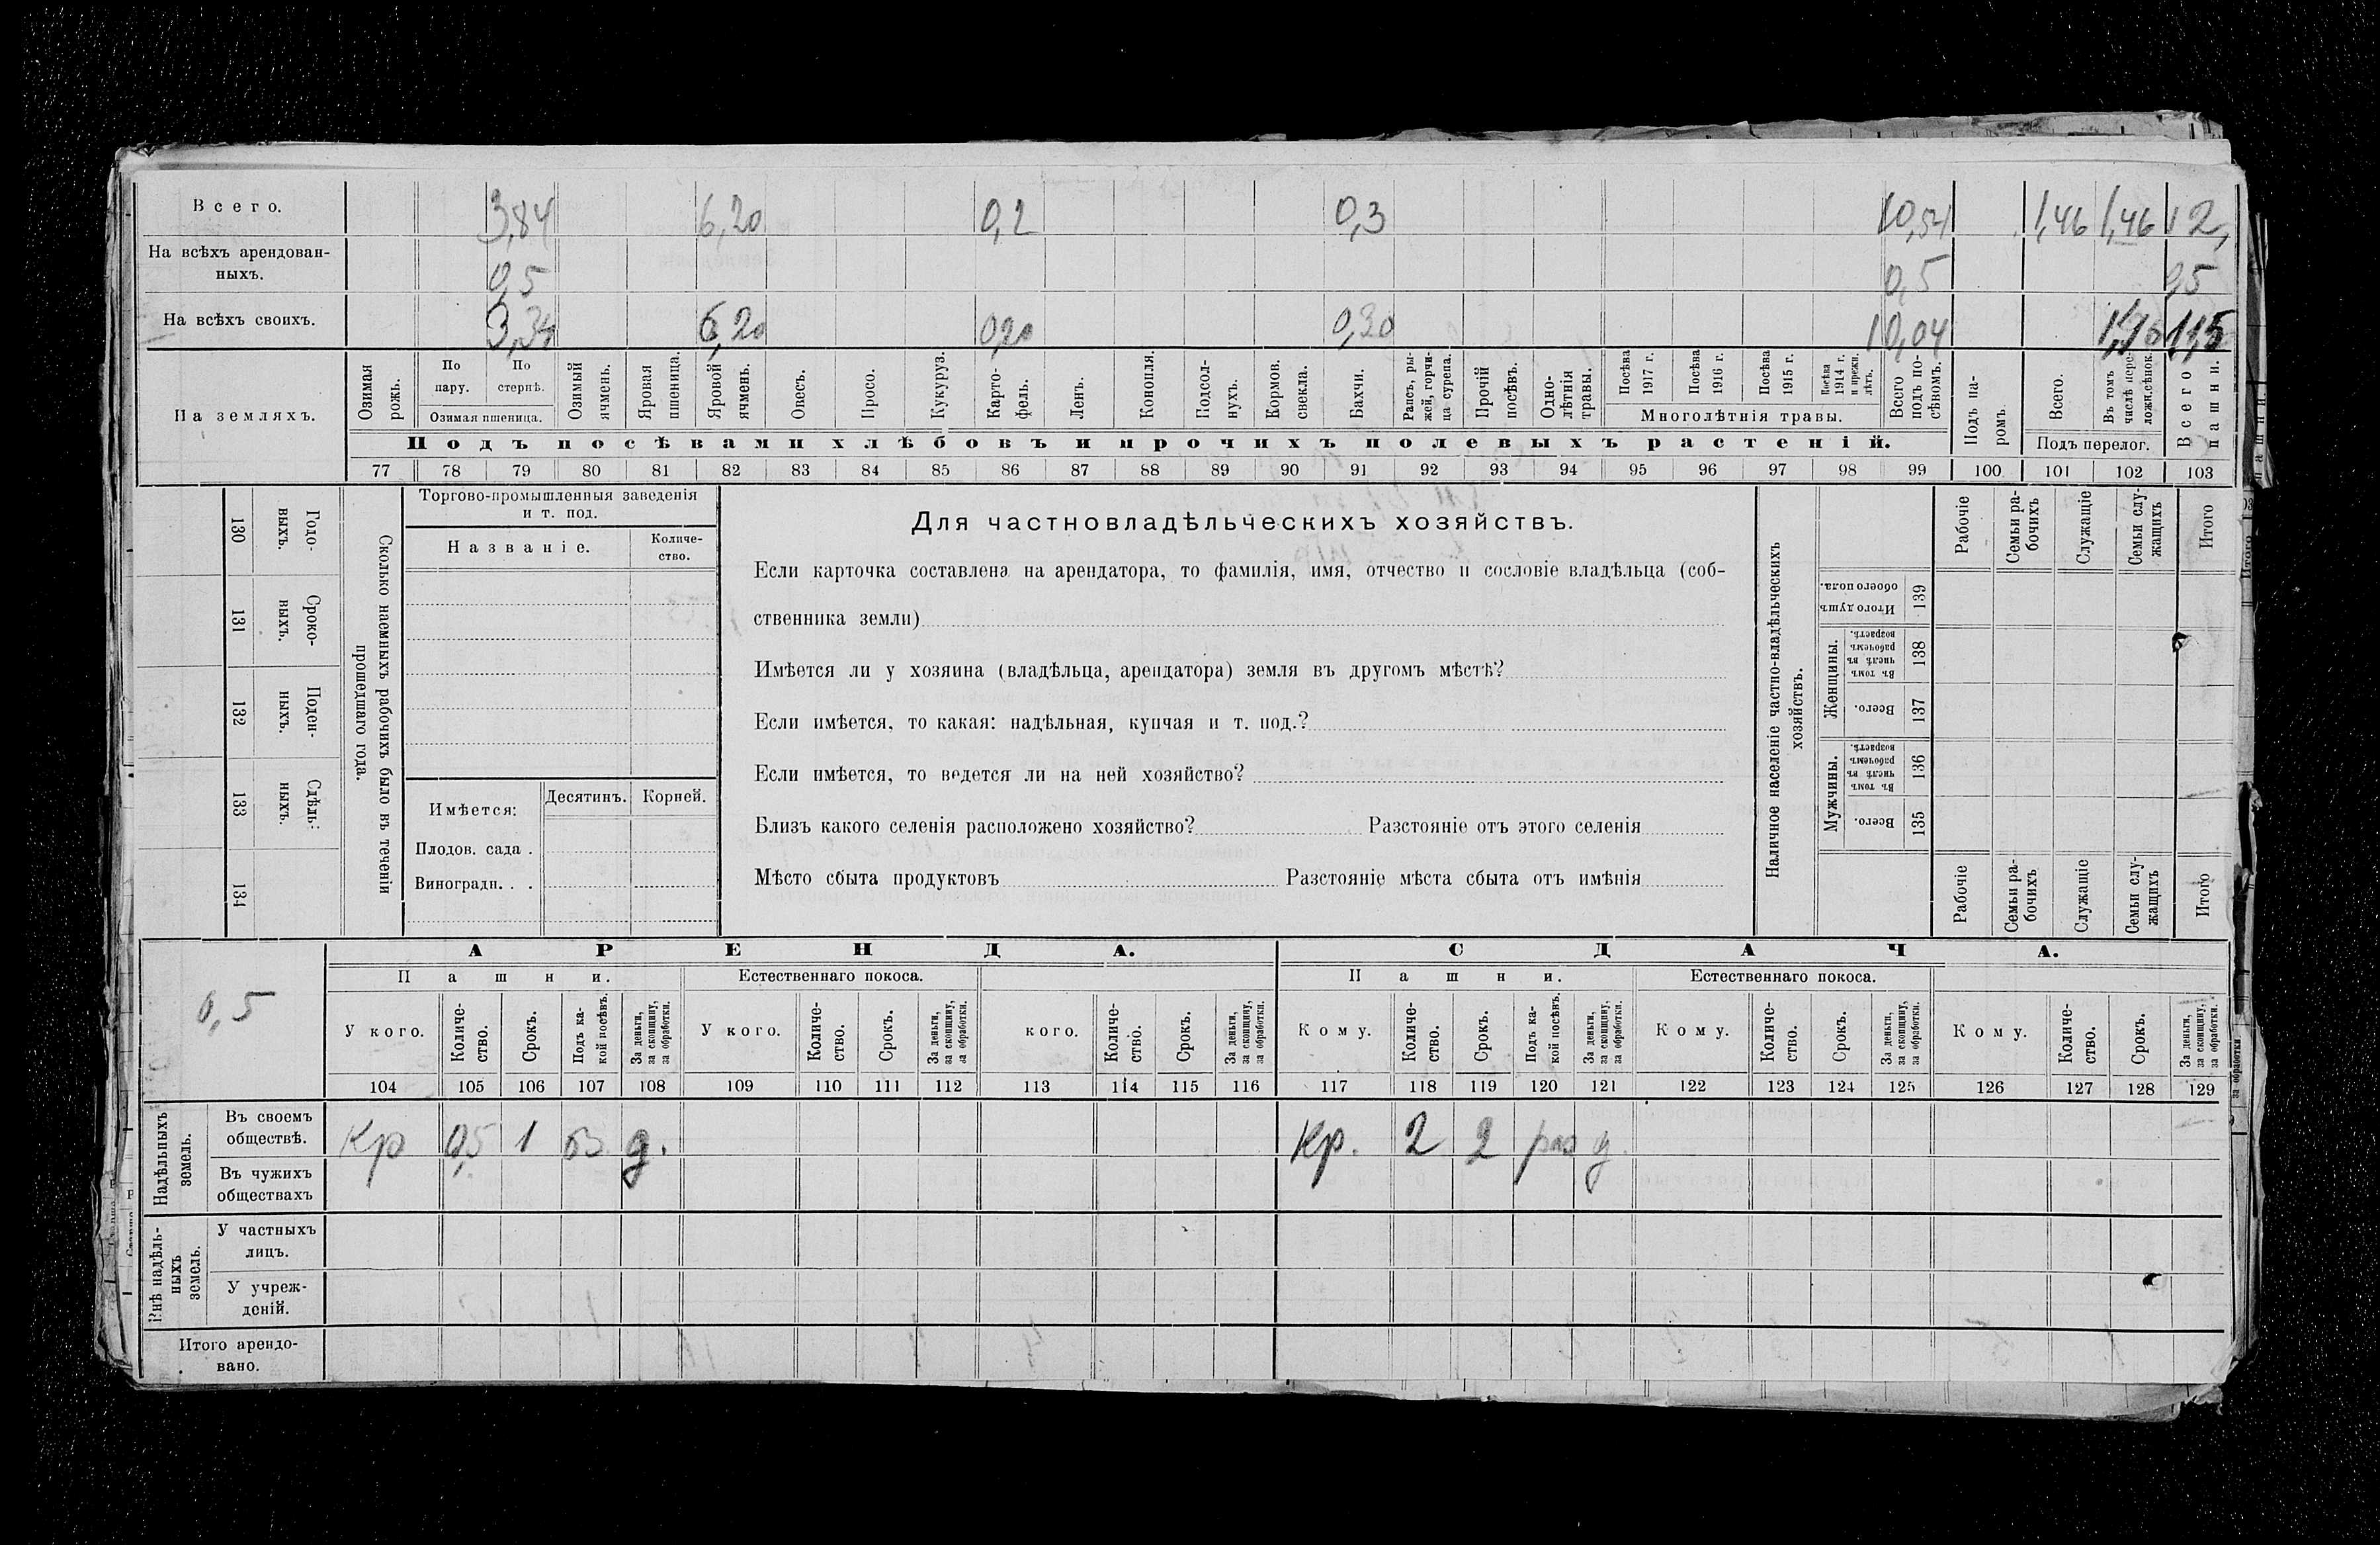 Всего. 3,84 6,20 0,2 0,3 10,54 1,46 1,46 12,
На всѣхъ арендован-
ныхъ. 0,5 0,5 0,5
На всѣхъ своихъ. 3,34 6,20 0,20 0,30 10,04 11,5
На земляхъ.
Озимая рожь.
По пару.
По стернѣ.
Озимая пшеница.
Озимый ячмень.
Яровая пшеница.
Яровой ячмень.
Овесъ.
Просо.
Кукуруз.
Карто-
фель.
Ленъ.
Конопля.
Подсол-
нухъ.
Кормов. свекла.
Бахчи.
Рапсъ, ры-
жей, горчи-
ца сурепа.
Прочій посѣвъ.
Одно-
лѣтнія травы.
Посѣва 1917 г.
Посѣва 1916 г.
Посѣва 1915 г.
Посѣва 1914 г. и прежн. лѣтъ.
Многолѣтнія травы.
Всего подъ по-
сѣвомъ.
Подъ па-
ромъ.
Всего.
Въ томъ числѣ пере-
ложн.сѣнок.
Подъ перелог.
Всего пашни.
Подъ посѣвами хлѣбовъ и прочихъ полевыхъ растеній.
77 78 79 80 81 82 83 84 85 86 87 88 89 90 91 92 93 94 95 96 97 98 99 100 101 102 103
130 Годо-
выхъ.
131 Сроко-
ныхъ.
132 Поден-
ныхъ.
133 Сдѣль-
ныхъ.
134
Сколько наемныхъ рабочихъ было въ теченіи
прошедшаго года.
Торгово-промышленныя заведенія
и т. под.
Названіе.
Количе-
ство.
Имѣется:
Десятинъ. Корней.
Плодов. сада .
Виноградн. . .
Для частновладѣльческихъ хозяйствъ.
Если карточка составлена на арендатора, то фамилія, имя, отчество и сословіе владѣльца (соб-
ственника земли)
Имѣется ли у хозяина (владѣльца, арендатора) земля въ другомъ мѣстѣ?
Если имѣется, то какая: надѣльная, купчая и т. под.?
Если имѣется, то ведется ли на ней хозяйство?
Близъ какого селенія расположено хозяйство? Разстояніе отъ этого селенія
Мѣсто сбыта продуктовъ Разстояніе мѣста сбыта отъ имѣнія
Наличное населеніе частно-владѣльческихъ
хозяйствъ.
Рабочіе
Семьи ра-
бочихъ
Служащіе
Семьи слу-
жащихъ
Итого
Итого душъ обоего пола. 139
Женщины.
Въ томъ числѣ въ рабочемъ возрастѣ. 138
Всего. 137
Мужчины.
Въ томъ числѣ въ рабочемъ возрастѣ. 136
Всего. 135
Рабочіе
Семьи ра-
бочихъ
Служащіе
Семьи слу-
жащихъ
Итого
0,5
АРЕНДА. СДАЧА.
Пашни. Естественнаго покоса. Пашни. Естественнаго покоса.
У кого.
Количе-
ство.
Срокъ.
Подъ ка-
кой посѣвъ.
За деньги, за скопщину, за обработки.
У кого.
Количе-
ство.
Срокъ.
За деньги, за скопщину, за обработки.
кого.
Количе-
ство.
Срокъ.
За деньги, за скопщину, за обработки.
Кому.
Количе-
ство.
Срокъ.
Подъ ка-
кой посѣвъ.
За деньги, за скопщину, за обработки.
Кому.
Количе-
ство.
Срокъ.
За деньги, за скопщину, за обработки.
Кому.
Количе-
ство.
Срокъ.
За деньги, за скопщину, за обработки.
104 105 106 107 108 109 110 111 112 113 114 115 116 117 118 119 120 121 122 123 124 125 126 127 128 129
Надѣльныхъ земель.
Въ своемъ
обществѣ. Кр 0,5 1 оз д. Кр. 2 2 раз д.
Въ чужихъ
обществахъ
Внѣ надѣль-
ныхъ земель.
У частныхъ
лицъ.
У учреж-
деній.
Итого арендо-
вано.